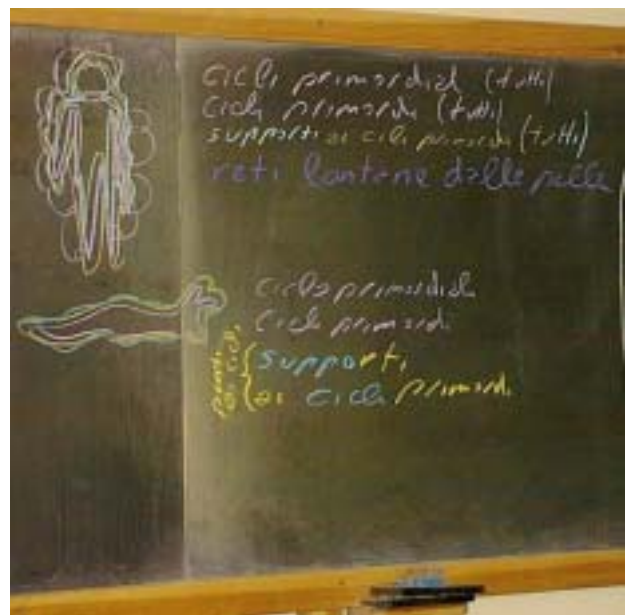 cicli primordiali (tutti)
cicli primordi (tutti)
supporti ai cicli primordi (tutti)
reti lontane dalla pelle
ciclo primordiale
cicli primordi
supporti
ai cicli primord.